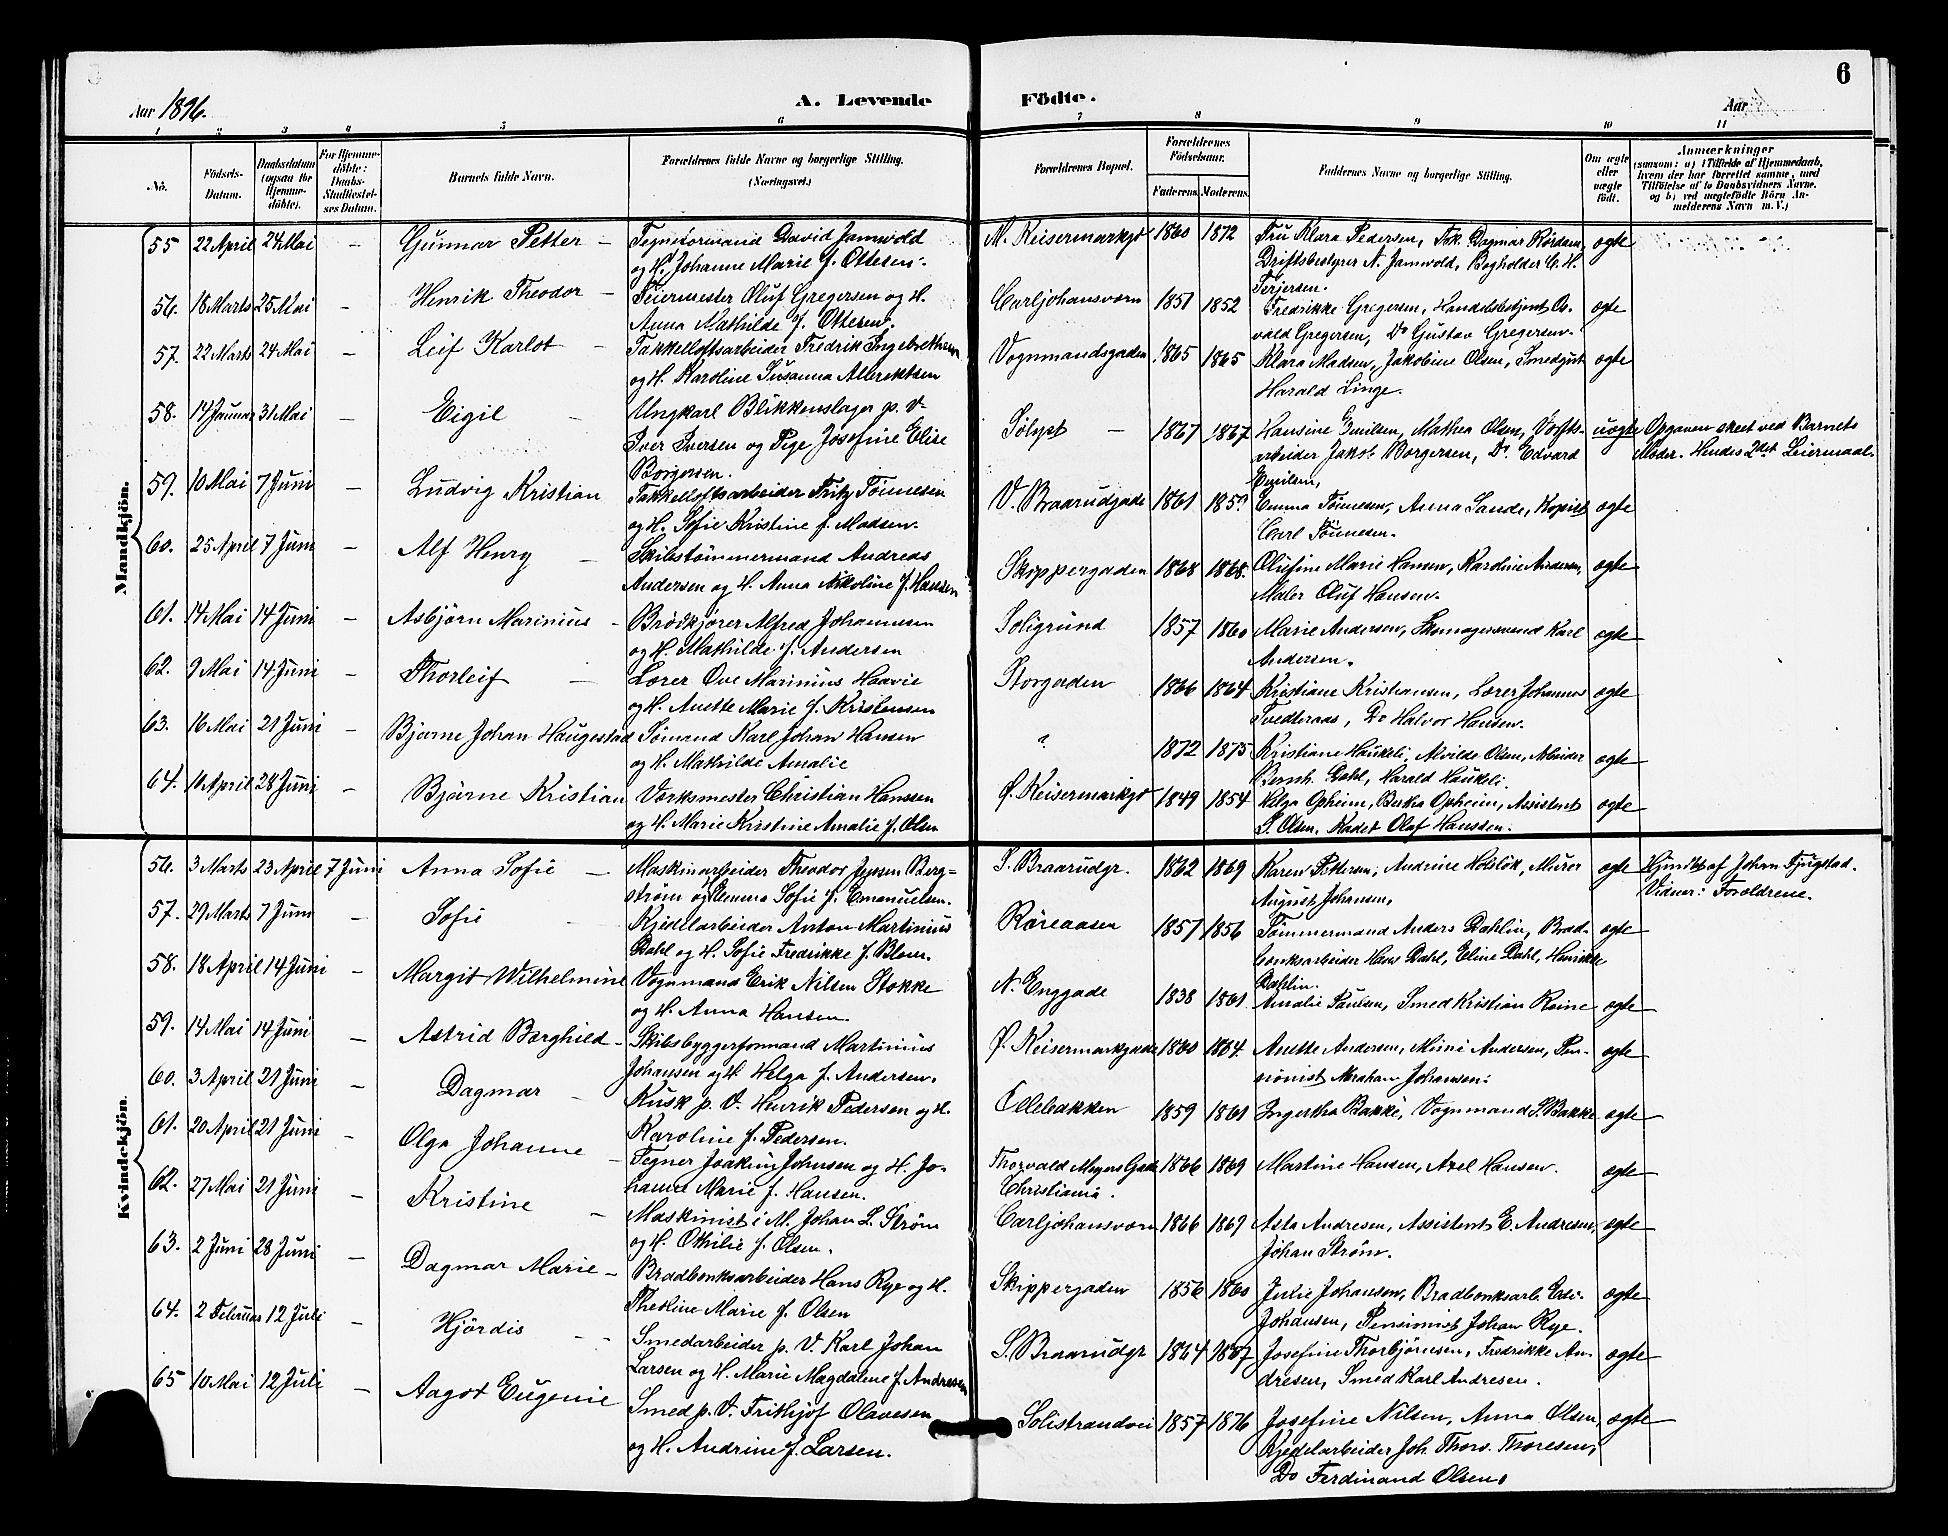 6
Aar 1896. A. Levende Födte. Aar
1 2 3 4 5 6 7 8 9 10 11
Nö. Födsels-Datum. Daabsdatum (ogsaa for Hjemmedöbte). For Hjemmedöbte: Daabs-Stadfæstelses Datum. Barnets fulde Navn. Forældrenes fulde Navne og borgerlige Stilling. (Næringsvei.) Forældrenes Bopæl. Forældrenes Födselsaar. Faderens. Moderens. Faddernes Navne og borgerlige Stilling. Om ægte eller uægte födt. Anmærkninger (saasom: a) i Tilfælde af Hjemmedaab, hvem der har forrettet samme, med Tilföielse af to Daabsvidners Navne, og b) ved uægtefödte Börn Anmelderens Navn m. V.)
Mandkjön.
55 22 April 24 Mai - Gunnar Petter - Tegneformand David Jamvold N. Keisermarkgd 1860 1872 Fru Klara Pedersen, Frk. Dagmar Rördam, ægte
og H. Johanne Marie f. Ottesen. Driftsbestyrer N. Jamvold, Bogholder C. H.
Terjersen.
56. 18 Marts 25 Mai - Henrik Theodor - Feiermester Oluf Gregersen og H. Carljohansværn 1851 1852 Fredrikke Gregersen, Handelsbetjent Os- ægte
Anna Mathilde f. Ottesen. vald Gregersen, Do Gustav Gregersen.
57. 22 Marts 24 Mai - Leif Karlot - Takkelloftsarbeider Fredrik Ingebrethsen Vognmandsgaden 1865 1865 Klara Madsen, Jakobine Olsen, Smedgut ægte
og H. Karoline Susanna Albrektsen Harald Linge.
58. 14 Januar 31 Mai - Eigil - Ungkarl Blikkenslager p. V. Sölyst - 1867 1867 Hansine Emilsen, Mathea Olsen, Værfts- uægte Opgaven skeet ved Barnets
Iver Iversen og Pige Josefine Elise arbeider Jakob Borgersen, Do Edvard Moder. Hendes 2det Leiermaal.
Borgersen. Emilsen,
59. 10 Mai 7 Juni - Ludvig Kristian Takkelloftsarbeider Fritz Tönnesen V. Braarudgade 1861 Emma Tönnesen, Anna Sande, Kopist ægte
og H. Sofie Kristine f. Madsen. Carl Tönnesen.
60. 25 April 7 Juni - Alf Henry - Skibstömmermand Andreas Skippergaden 1868 1868. Olufine Marie Hansen, Karoline Andersen, ægte
Andersen og H. Anna Nikoline f. Hansen Maler Oluf Hansen.
61. 14 Mai 14 Juni - Asbjörn Marinius - Brödkjörer Alfred Johannesen Soligrund 1857 1860 Marie Andersen, Skomagersvend Karl ægte
og H. Mathilde f. Andersen Andersen.
62. 9 Mai 14 Juni - Thorleif - Lærer Ove Marinius Haavie Storgaden 1866 1864 Kristiane Kristiansen, Lærer Johannes ægte
og H. Anette Marie f. Kristensen Tvedteraas, Do Halvor Hansen.
63. 16 Mai 21 Juni - Bjarne Johan Haugestad Sömand Karl Johan Hansen ? 1872 1875 Kristiane Haukeli, Alvilde Olsen, Arbeider ægte
og H. Mathilde Amalie Bernh. Dahl, Harald Haukeli.
64. 10 April 28 Juni - Bjarne Kristian Værksmester Christian Hanssen Ö. Keisermarkgd 1849 1854 Helga Opheim, Betha Opheim, Assistent ægte
og H. Marie Kristine Amalie f. Olsen S. Olsen, Kadet Olaf Hanssen.
Kvindekjön.
56. 3 Marts 23 April 7 Juni Anna Sofie - Maskinarbeider Theodor Jensen Berg- S. Braarudgr. 1862 1869 Karen Pettersen, Andrine Holslök, Murer ægte Hjmdbt af Johan Fjugstad.
ström og Hemma Sofie f. Emanuelsen. August Johansen, Vidner: Forældrene.
57. 29 Marts 7 Juni - Sofie - Kjedelarbeider Anton Martinius Röreaasen 1857 1856 Tömmermand Anders Dahlin, Brad- ægte
Dahl og H. Sofie Fredrikke f. Blom. bænksarbeider Hans Dahl, Eline Dahl, Henrikke
Dahlin.
58. 18 April 14 Juni - Margit Wilhelmine Vognmand Erik Nilsen Stokke N. Enggade 1838 1861 Amalie Paulsen, Smed Kristian Reine ægte
og H. Anna Hansen.
59. 14 Mai 14 Juni - Astrid Borghild - Skibsbyggerformand Martinius Ö. Keisermarkgade 1860 1864. Anette Andersen, Mimi Andersen, Pen- ægte
Johansen og H. Helga f. Andersen. sionist Abraham Johansen.
60. 3 April 21 Juni - Dagmar - Kusk p. V. Henrik Pedersen og H. Ollebakken 1859 1861 Ingertha Bakke, Vognmand S. Bakke ægte
Karoline f. Pedersen.
61. 20 April 21 Juni - Olga Johanne - Tegner Joakim Johnsen og H. Jo- Thorvald Meyers Gade 1866 1869 Martine Hansen, Axel Hansen. ægte
hanne Marie f. Hansen. Christiania.
62. 27 Mai 21 Juni - Kristine - Maskinist i M. Johan L. Ström Carljohansværn 1866 1869 Asta Andresen, Assistent E. Andresen, ægte
og H. Othilie f. Olsen. Johan Ström.
63. 2 Juni 28 Juni - Dagmar Marie - Bradbænksarbeider Hans Rye og H. Skippergaden 1856 1860 Julie Johansen, Bradbænksarb. Edv. ægte
Theoline Marie f. Olsen Johansen, Pensionist Johan Rye.
64. 2 Februar 12 Juli - Hjördis - Smedarbeider p. V. Karl Johan S. Braarudgr 1864 1867 Josefine Thorbjörnsen, Fredrikke An- ægte
Larsen og H. Marie Magdalene f. Andresen dresen, Smed Karl Andresen.
65 10 Mai 12 Juli - Aagot Eugenie Smed p. V. Frithjof Olavesen Solistrandvei 1857 1876 Josefine Nilsen, Anna Olsen, ægte
og H. Andrine f. Larsen. Kjedelarbeider Joh. Thorv. Thoresen,
Do Ferdinand Olsen.